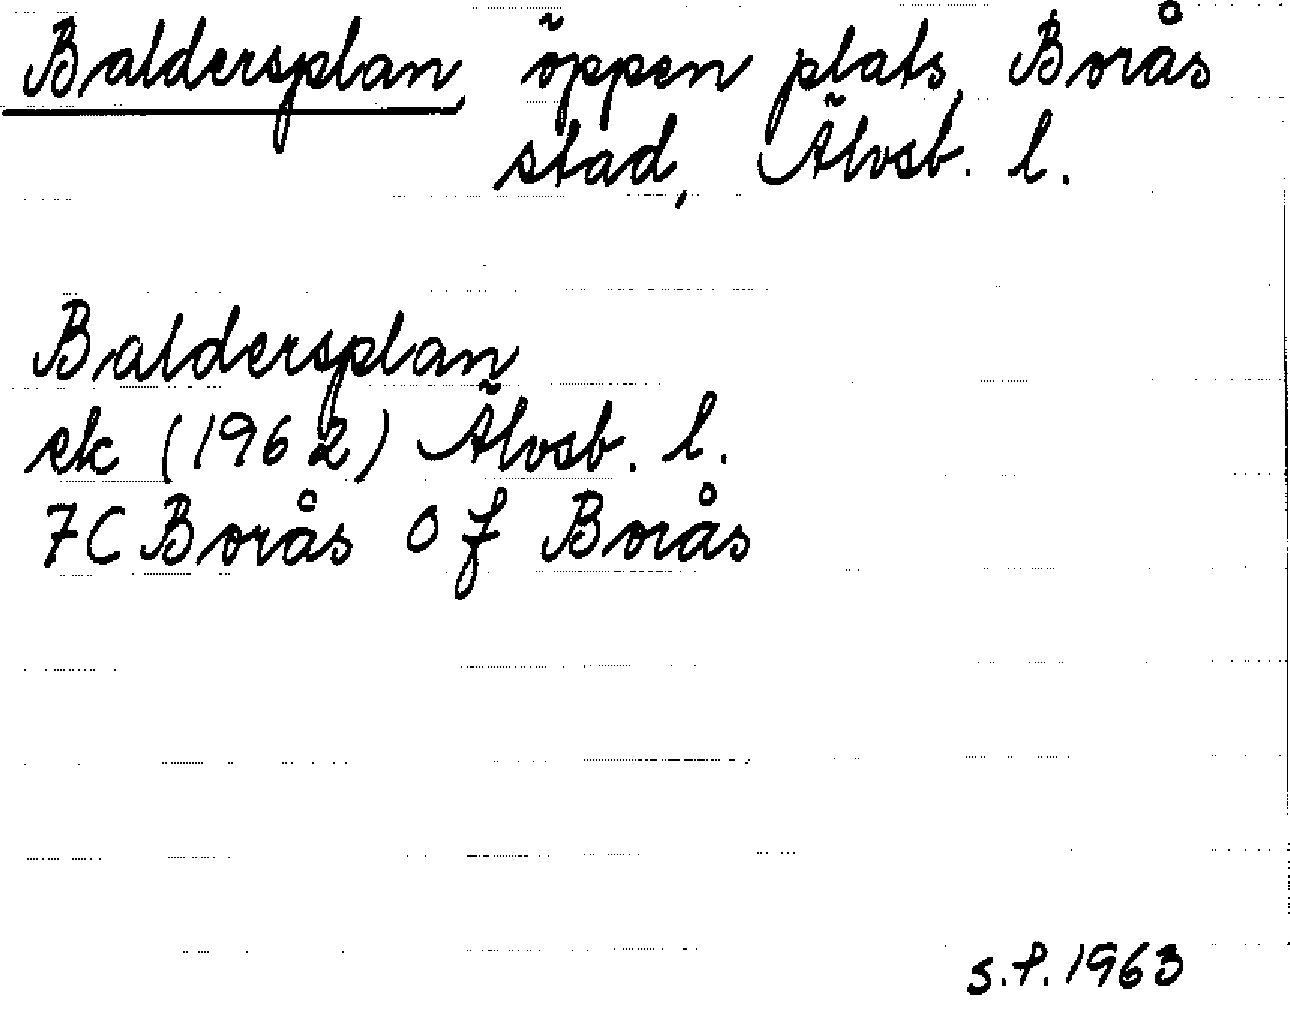 Baldersplan, öppen plats, Borås
stad, Älvsb. l.
Baldersplan
ek (1962) Älvsb. l.
7C Borås 0 f Borås
s.f. 1963